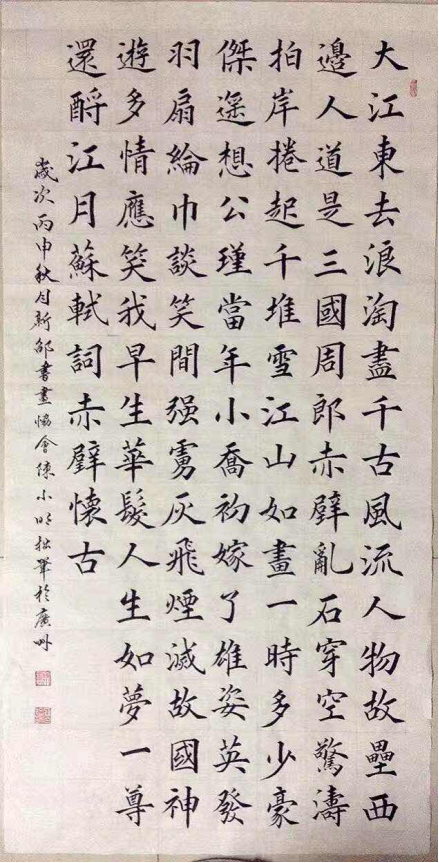 大江東去浪淘盡千古風流人物故壘西
邊人道是三國周郎赤壁亂石穿空驚濤
拍岸捲起千堆雪江山如畫一時多少豪
傑遥想公瑾當年小喬初嫁了雄姿英發
羽扇綸巾談笑間强虜灰飛煙滅故國神
遊多情應笑我早生華髮人生如夢一尊
還酹江月蘇軾詞赤壁懷古
歲次丙申秋月新邵書畫協會陳小明拙筆於廣州